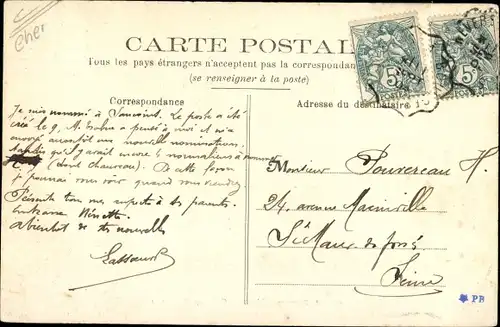 Cher
CARTE POSTALE
Tous les pays étrangers n'acceptent pas la correspondance
(se renseigner à la poste)
Correspondance
Adresse du destinataire
Je suis nommé à Sancoins. Le poste a été
créé le 9, M. a pensé à moi et m'a
envoyé aussitôt ma nouvelle nomination.
qu'il y avait encore 4 normaliens à nommer
(dont chauveau). De cette façon
je pourrai vous voir quand vous viendrez
Présente tous mes respects à tes parents.
Embrasse Ninette
à bientôt de tes nouvelles
Monsieur H.
24, avenue Mainville
St Maur des fossés
Seine
5
5
PB